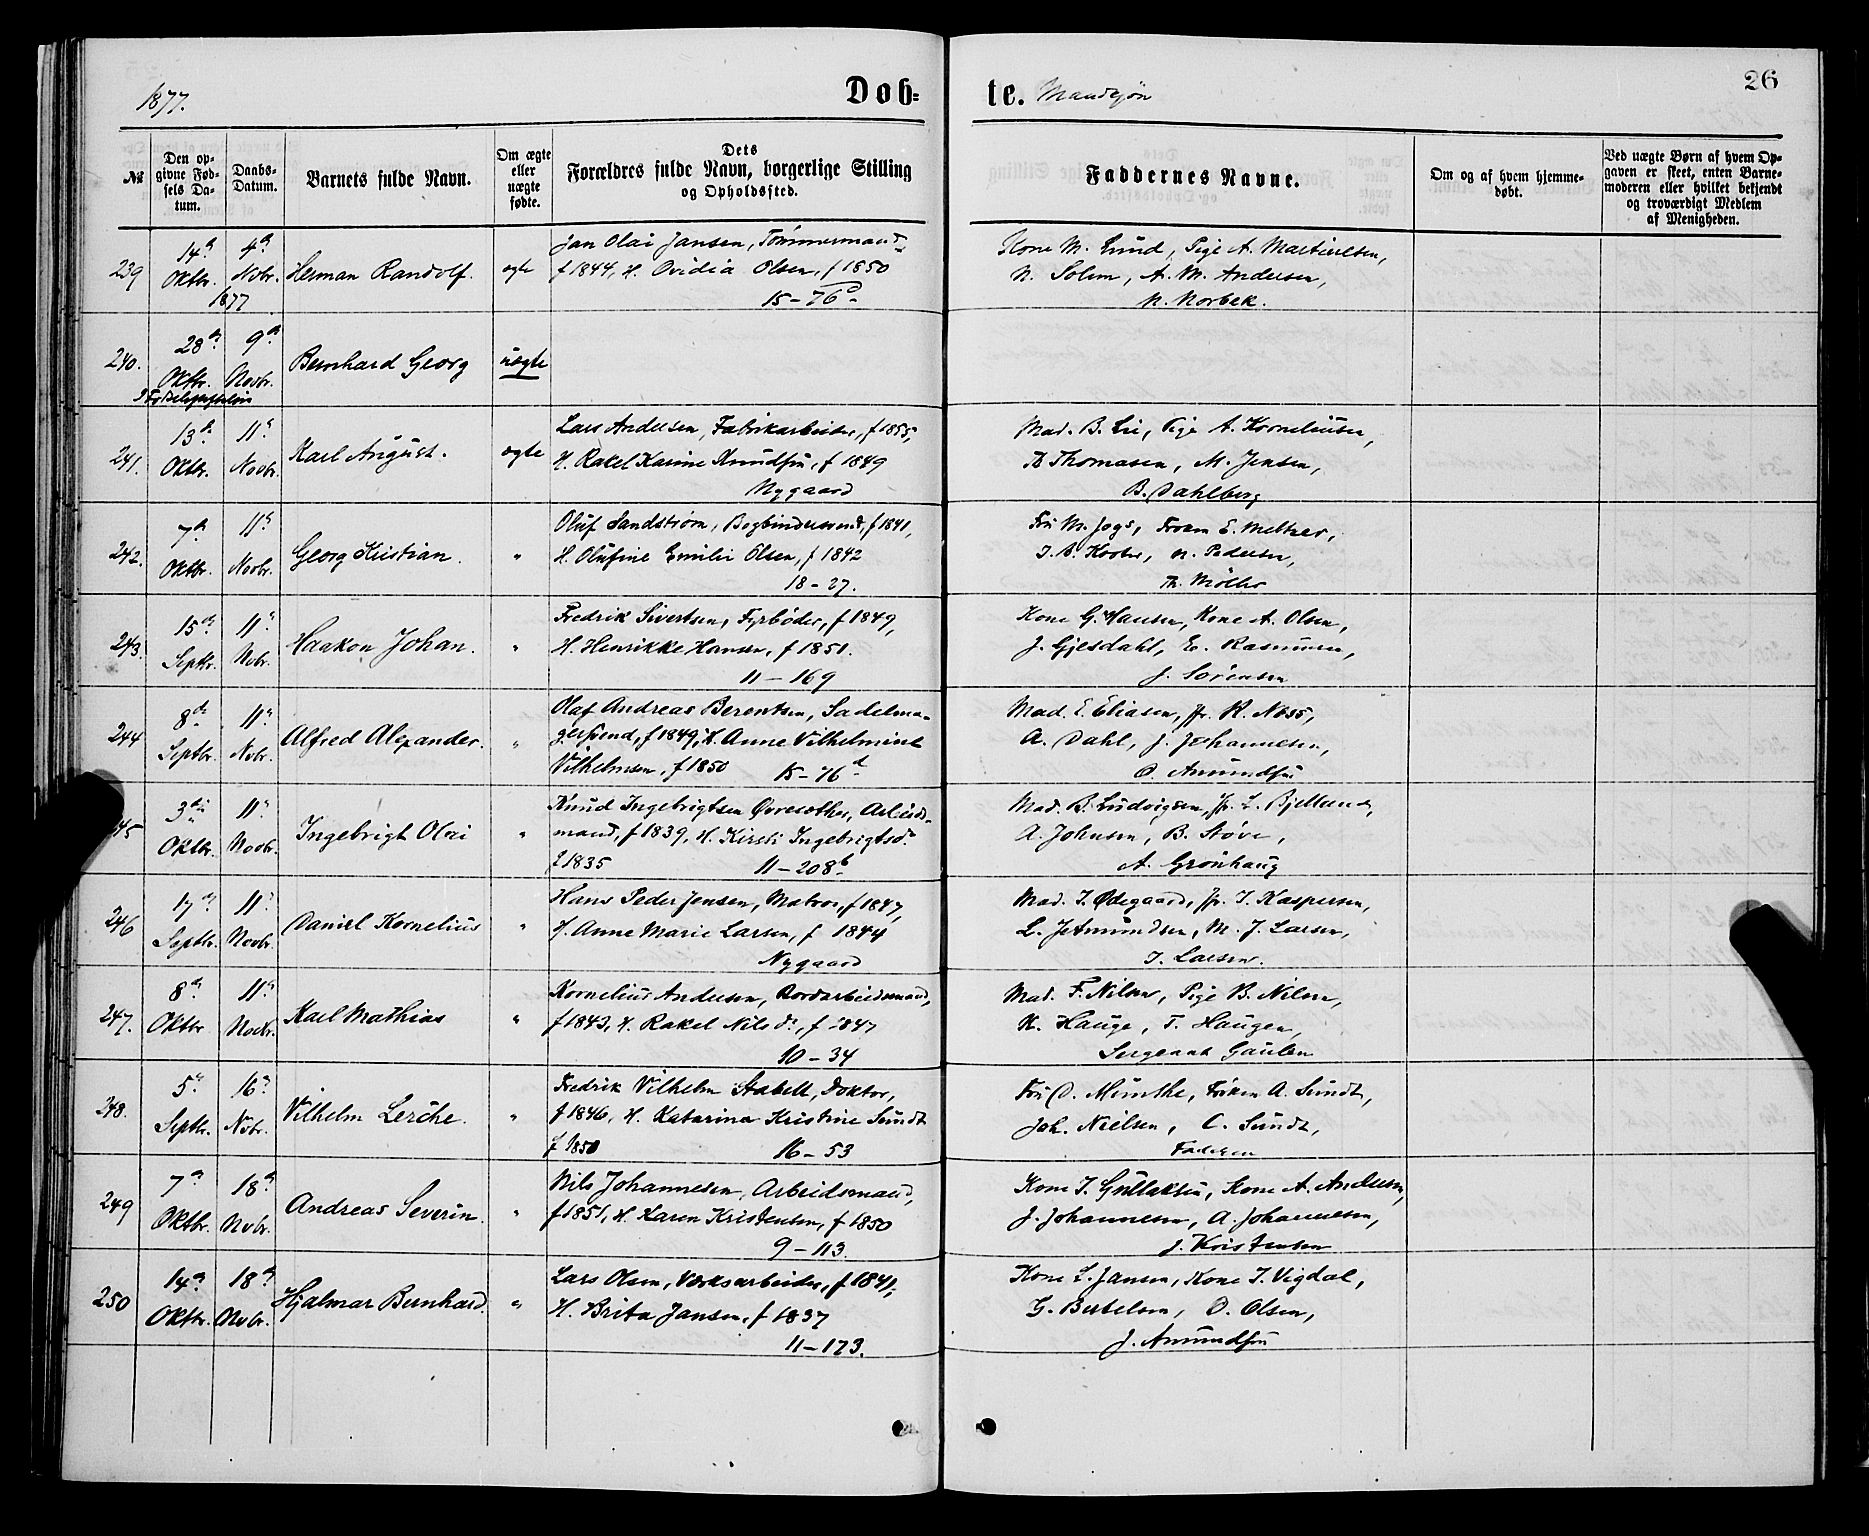 1877.
Døb=
te. Mandkjøn
26
№
Den op-
givne Fød-
sels Da-
tum.
Daabs-
Datum.
Barnets fulde Navn.
Om ægte
eller
uægte
fødte.
Dets
Forældres fulde Navn, borgerlige Stilling
og Opholdssted.
Faddernes Navne.
Om og af hvem hjemme-
døbt.
Ved uægte Børn af hvem Op-
gaven er skeet, enten Barne-
moderen eller hvilket bekjendt
og troværdigt Medlem
af Menigheden.
239
14de Oktbr. 1877
4de Novbr.
Herman Randolf.
ægte
Jan Olai Jansen, Tømmermand
f 1844, H. Ovidia Olsen, f 1850
15-76 c
Kone M. Lund, Pige A. Martinsen,
N. Solem, A. M. Andersen,
N. Norbek.
240.
28de Oktbr.
9de Novbr.
Bernhard Georg
uægte
I Fødselsstiftelsen
241.
13de Oktbr.
11te Novbr.
Karl August.
ægte
Lars Andersen, Fabrikarbeider, f 1855,
H. Rakel Karine Knudsen, f 1849
Nygaard
Mad. B. Lie, Pige A. Korneliusen,
Thomasen, M. Jensen,
B. Dahlberg
242.
7de Oktbr.
11te Novbr.
Georg Kristian.
"
Oluf Sandstrøm, Bogbindersvend, f 1841,
H. Olufine Emilie Olsen, f 1842
18-27.
Fru M. Jogs, Frøken E. Meltzer,
N. Pedersen,
Th. Møller
243.
15de Septbr.
11te Nvbr.
Haakon Johan.
"
Fredrik Sivertsen, Fyrbøder, f 1849,
H. Henrikke Hansen, f 1851.
11-169
Kone G. Hansen, Kone A. Olsen,
J. Gjesdahl, E. Rasmusen,
J. Sørensen
244
8de Septbr.
11te Nvbr.
Alfred Alexander.
"
Olaf Andreas Berentsen, Sadelma-
gersvend, f 1849, H. Anne Vilhelmine
Vilhelmsen, f 1850 15-76 d
Mad. E. Eliasen, Jfr. K. Næss,
A. Dahl, J. Johannesen,
O. Amundsen
245
3die Oktbr.
11te Novbr.
Ingebrigt Olai
"
Knud Ingebrigtsen Øvresæther, Arbeids-
mand, f 1839, H. Kirsti Ingebrigtsdr.
f 1835 11-208 b
Mad. B. Ludvigsen, Jfr. L. Bjelland,
A. Johnsen, B. Støve,
A. Grønhaug
246
17de Septbr.
11te Novbr.
Daniel Kornelius
"
Hans Peder Jensen, Matros, f 1847,
H. Anne Marie Larsen, f 1844
Nygaard
Mad. I. Ødegaard, Jfr. I. Kaspersen,
L. Jetmundsen, M. J. Larsen,
I. Larsen.
247.
8de Oktbr
11te Novbr.
Karl Mathias
"
Kornelius Andersen, Jordarbeidsmand,
f 1843, H. Rakel Nilsdr., f 1847
10-34
Mad. F. Nilsen, Pige B. Nilsen,
K. Hauge, T. Haugen,
Sergeant Gaulen
248.
5te Septbr.
16de Nvbr.
Vilhelm Lerche.
"
Fredrik Vilhelm Stabell, Doktor,
f 1846, H. Katarina Kristine Sundt
f 1850 16-53
Fru O. Munthe, Frøken A. Sundt,
Joh. Nielsen, C. Sundt,
Faderen
249
7de Oktbr.
18de Nvbr.
Andreas Severin.
"
Nils Johannesen, Arbeidsmand,
f 1851, H. Karen Kristensen, f 1850
9-113.
Kone I. Gullaksen, Kone A. Andersen,
J. Johannesen, A. Johannesen,
J. Kristensen
250
14de Oktbr.
18de Nvbr.
Hjalmar Bernhard.
"
Lars Olsen, Værksarbeider, f 1841,
H. Brita Jansen, f 1837
11-173.
Kone L. Jansen, Kone I. Vigdal,
G. Bertelsen, O. Olsen,
J. Amundsen